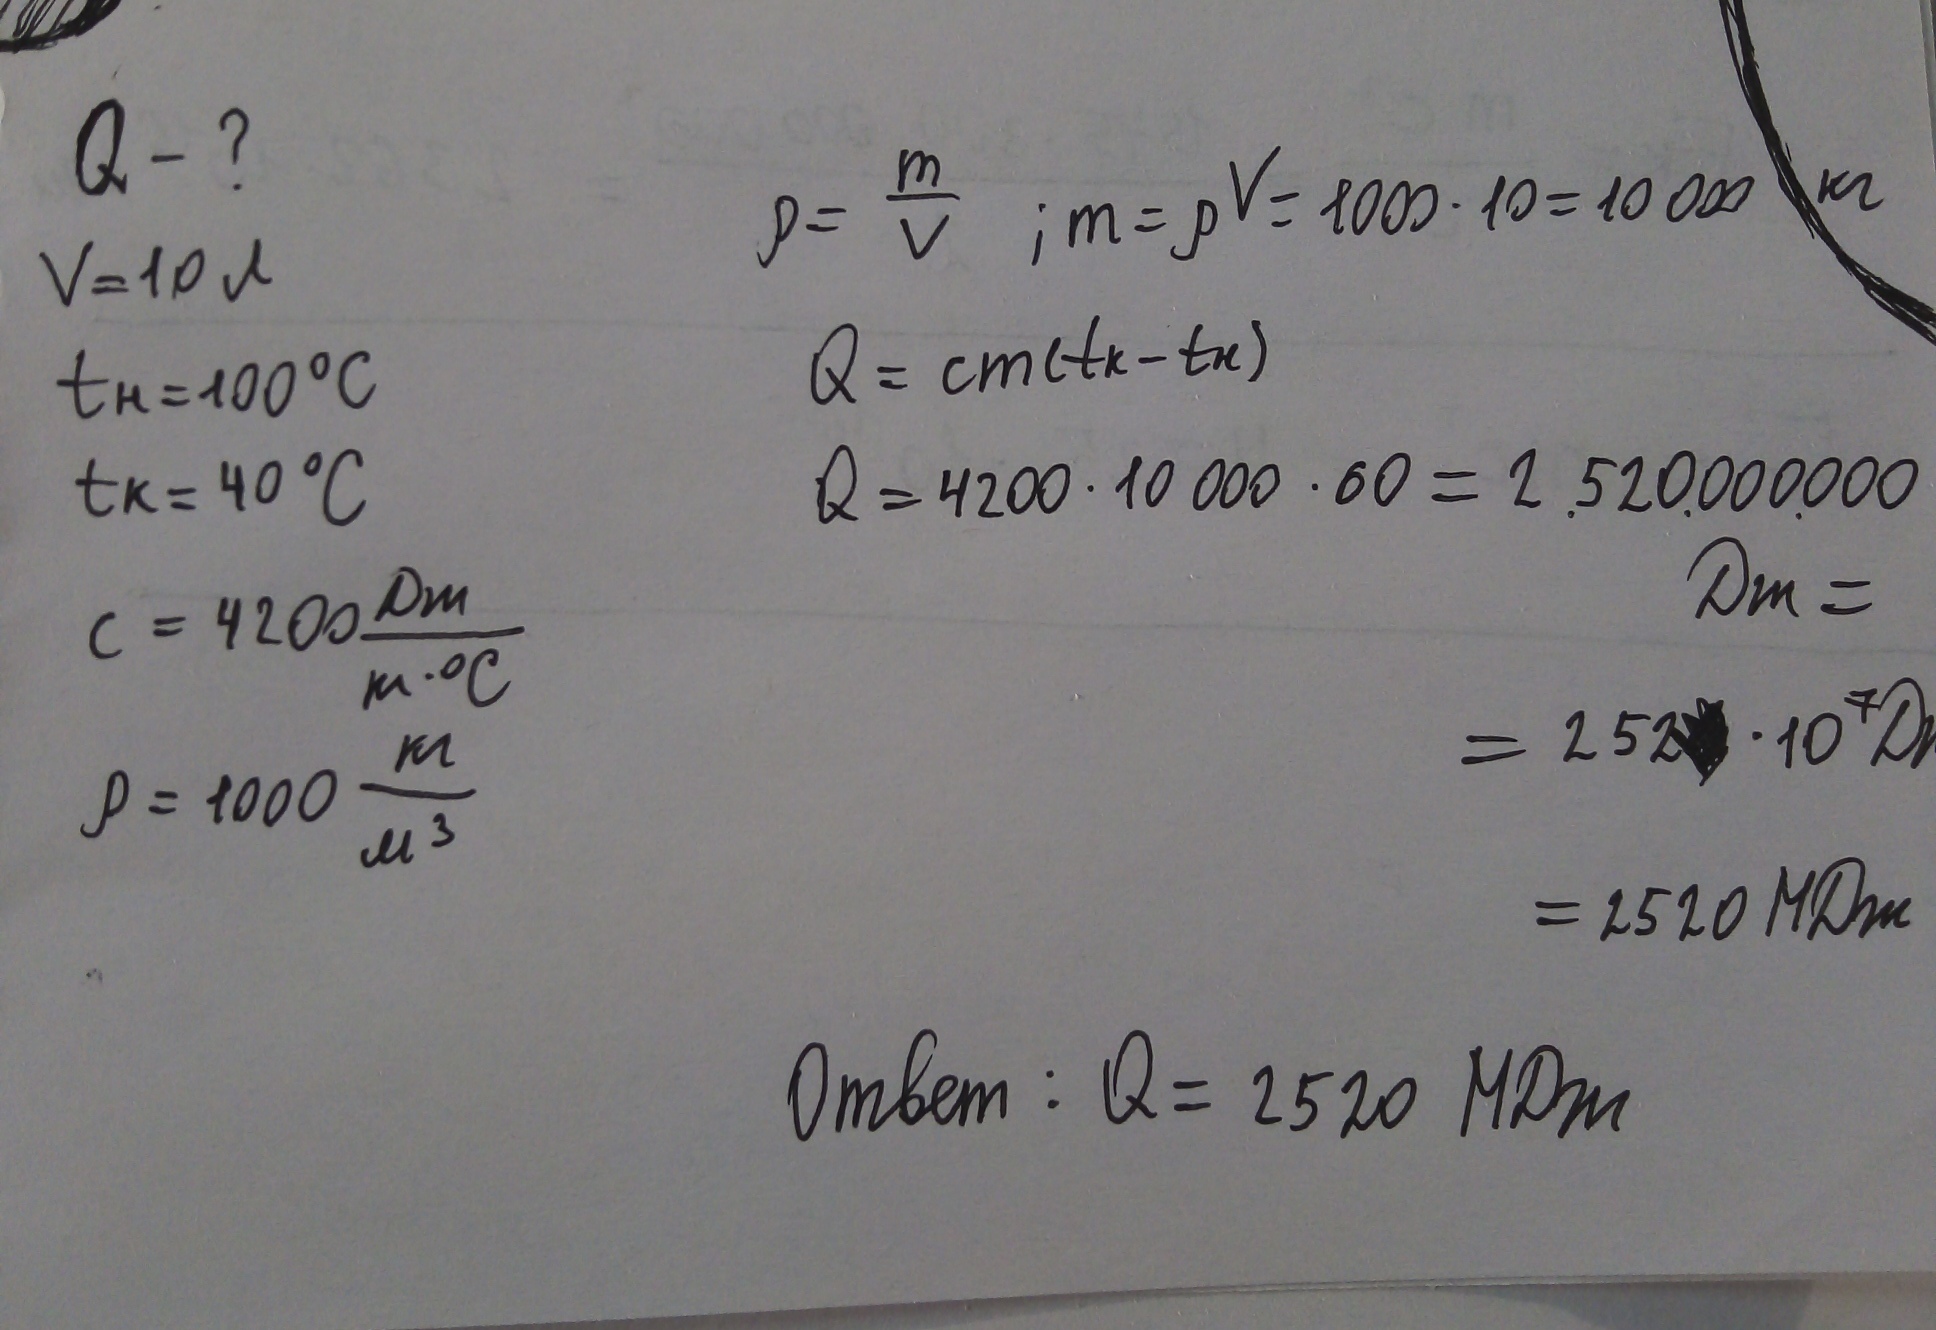 Q - ?
V = 10 л
tн = 100°C
tк = 40°C
c = 4200 Dж / кг·°C
ρ = 1000 кг / м³
ρ = m / V ; m = ρV = 1000 · 10 = 10 000 кг
Q = cm(tк - tн)
Q = 4200 · 10 000 · 60 = 2.520.000.000
Dж =
= 252 · 10⁷ Dж
= 2520 МDж
Ответ : Q = 2520 МDж